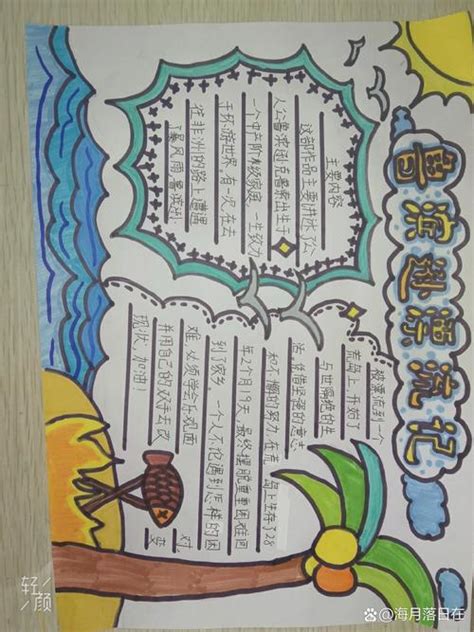 鲁滨逊漂流记
主要内容
这部作品主要讲述了公
人公鲁滨逊克鲁索出生于
一个中产阶级家庭,一生致力
于环游世界,有一次在去
往非洲的路上遭遇
了暴风雨,鲁滨逊
被漂流到一个
荒岛上,开始了
与世隔绝的生
活,凭借坚强的意志
和不懈的努力,在荒岛上生存了28
年2个月19天,最终摆脱重重困难回
到了家乡,一个人不论遇到怎样的困
难,必须学会乐观面对,
并用自己的双手去改变
现状,加油!
轻颜
海月落日在